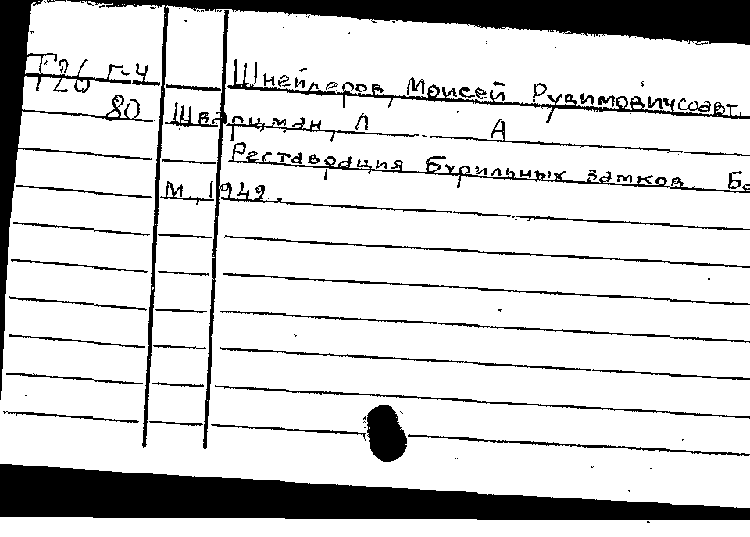 Т26 Г-4 Шнейдеров, Моисей Рувимович соавт.
80 Шварцман, Л А
Реставрация бурильных замков. Ба
М., 1949.